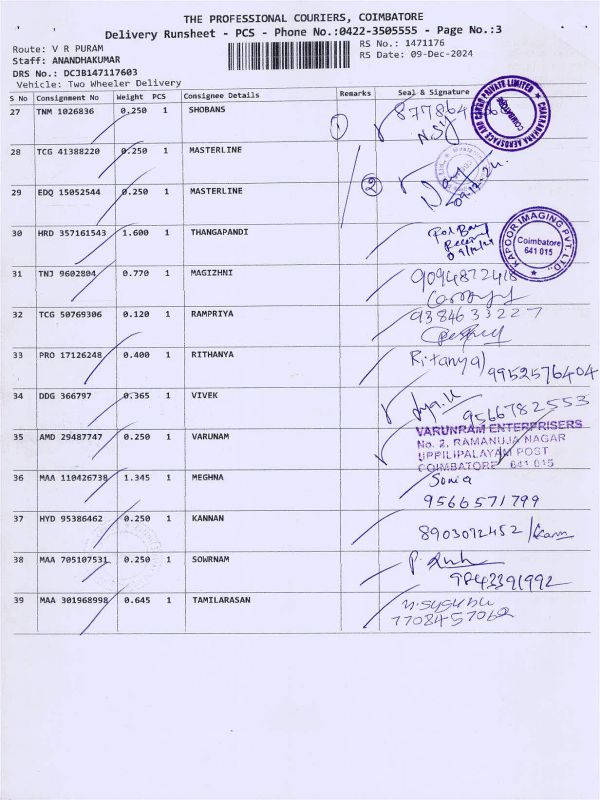 THE PROFESSIONAL COURIERS, COIMBATORE
Delivery Runsheet - PCS - Phone No.:0422-3505555 - Page No.:3
Route: V R PURAM
RS No.: 1471176
Staff: ANANDHAKUMAR
RS Date: 09-Dec-2024
DRS No.: DCJB147117603
Vehicle: Two Wheeler Delivery
S No Consignment No Weight PCS Consignee Details Remarks Seal & Signature
27 TNM 1026836 0.250 1 SHOBANS
1
CHAKRADHARA AEROSPACE AND CARGO PRIVATE LIMITED
COIMBATORE
28 TCG 41388220 0.250 1 MASTERLINE
29 EDQ 15052544 0.250 1 MASTERLINE
2
09.12.24
30 HRD 357161543 1.600 1 THANGAPANDI
KAPOOR IMAGING PVT. LTD.
Coimbatore
641 015
31 TNJ 9602804 0.770 1 MAGIZHNI
9094872418
32 TCG 50769306 0.120 1 RAMPRIYA
9384633227
33 PRO 17126248 0.400 1 RITHANYA
Ritanya)
9952576404
34 DDG 366797 0.365 1 VIVEK
9566782553
35 AMD 29487747 0.250 1 VARUNAM
VARUNRAM ENTERPRISERS
No. 2, RAMANUJA NAGAR
UPPILIPALAYAM POST
COIMBATORE 641 015
36 MAA 110426738 1.345 1 MEGHNA
Sonia
9566571799
37 HYD 95386462 0.250 1 KANNAN
8903072452
38 MAA 705107531 0.250 1 SOWRNAM
9843391992
39 MAA 301968998 0.645 1 TAMILARASAN
7708457062